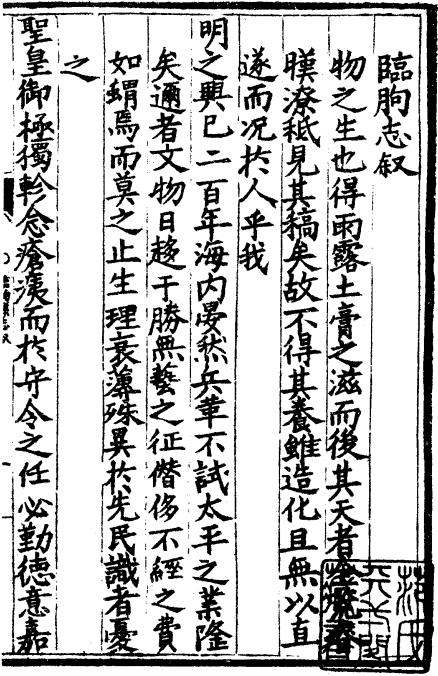 臨朐志叙
物之生也得雨露土膏之滋而後其天者全
暵潦秪見其稿矣故不得其養雖造化且無以直
遂而況於人乎我
明之興已二百年海內晏然兵革不試太平之業隆
矣邇者文物日趍于勝無藝之征僭侈不經之費
如蝟焉而莫之止生理衰薄殊異於先民識者憂
之
聖皇御極獨軫念瘡痍而於守令之任必勤德意嘉